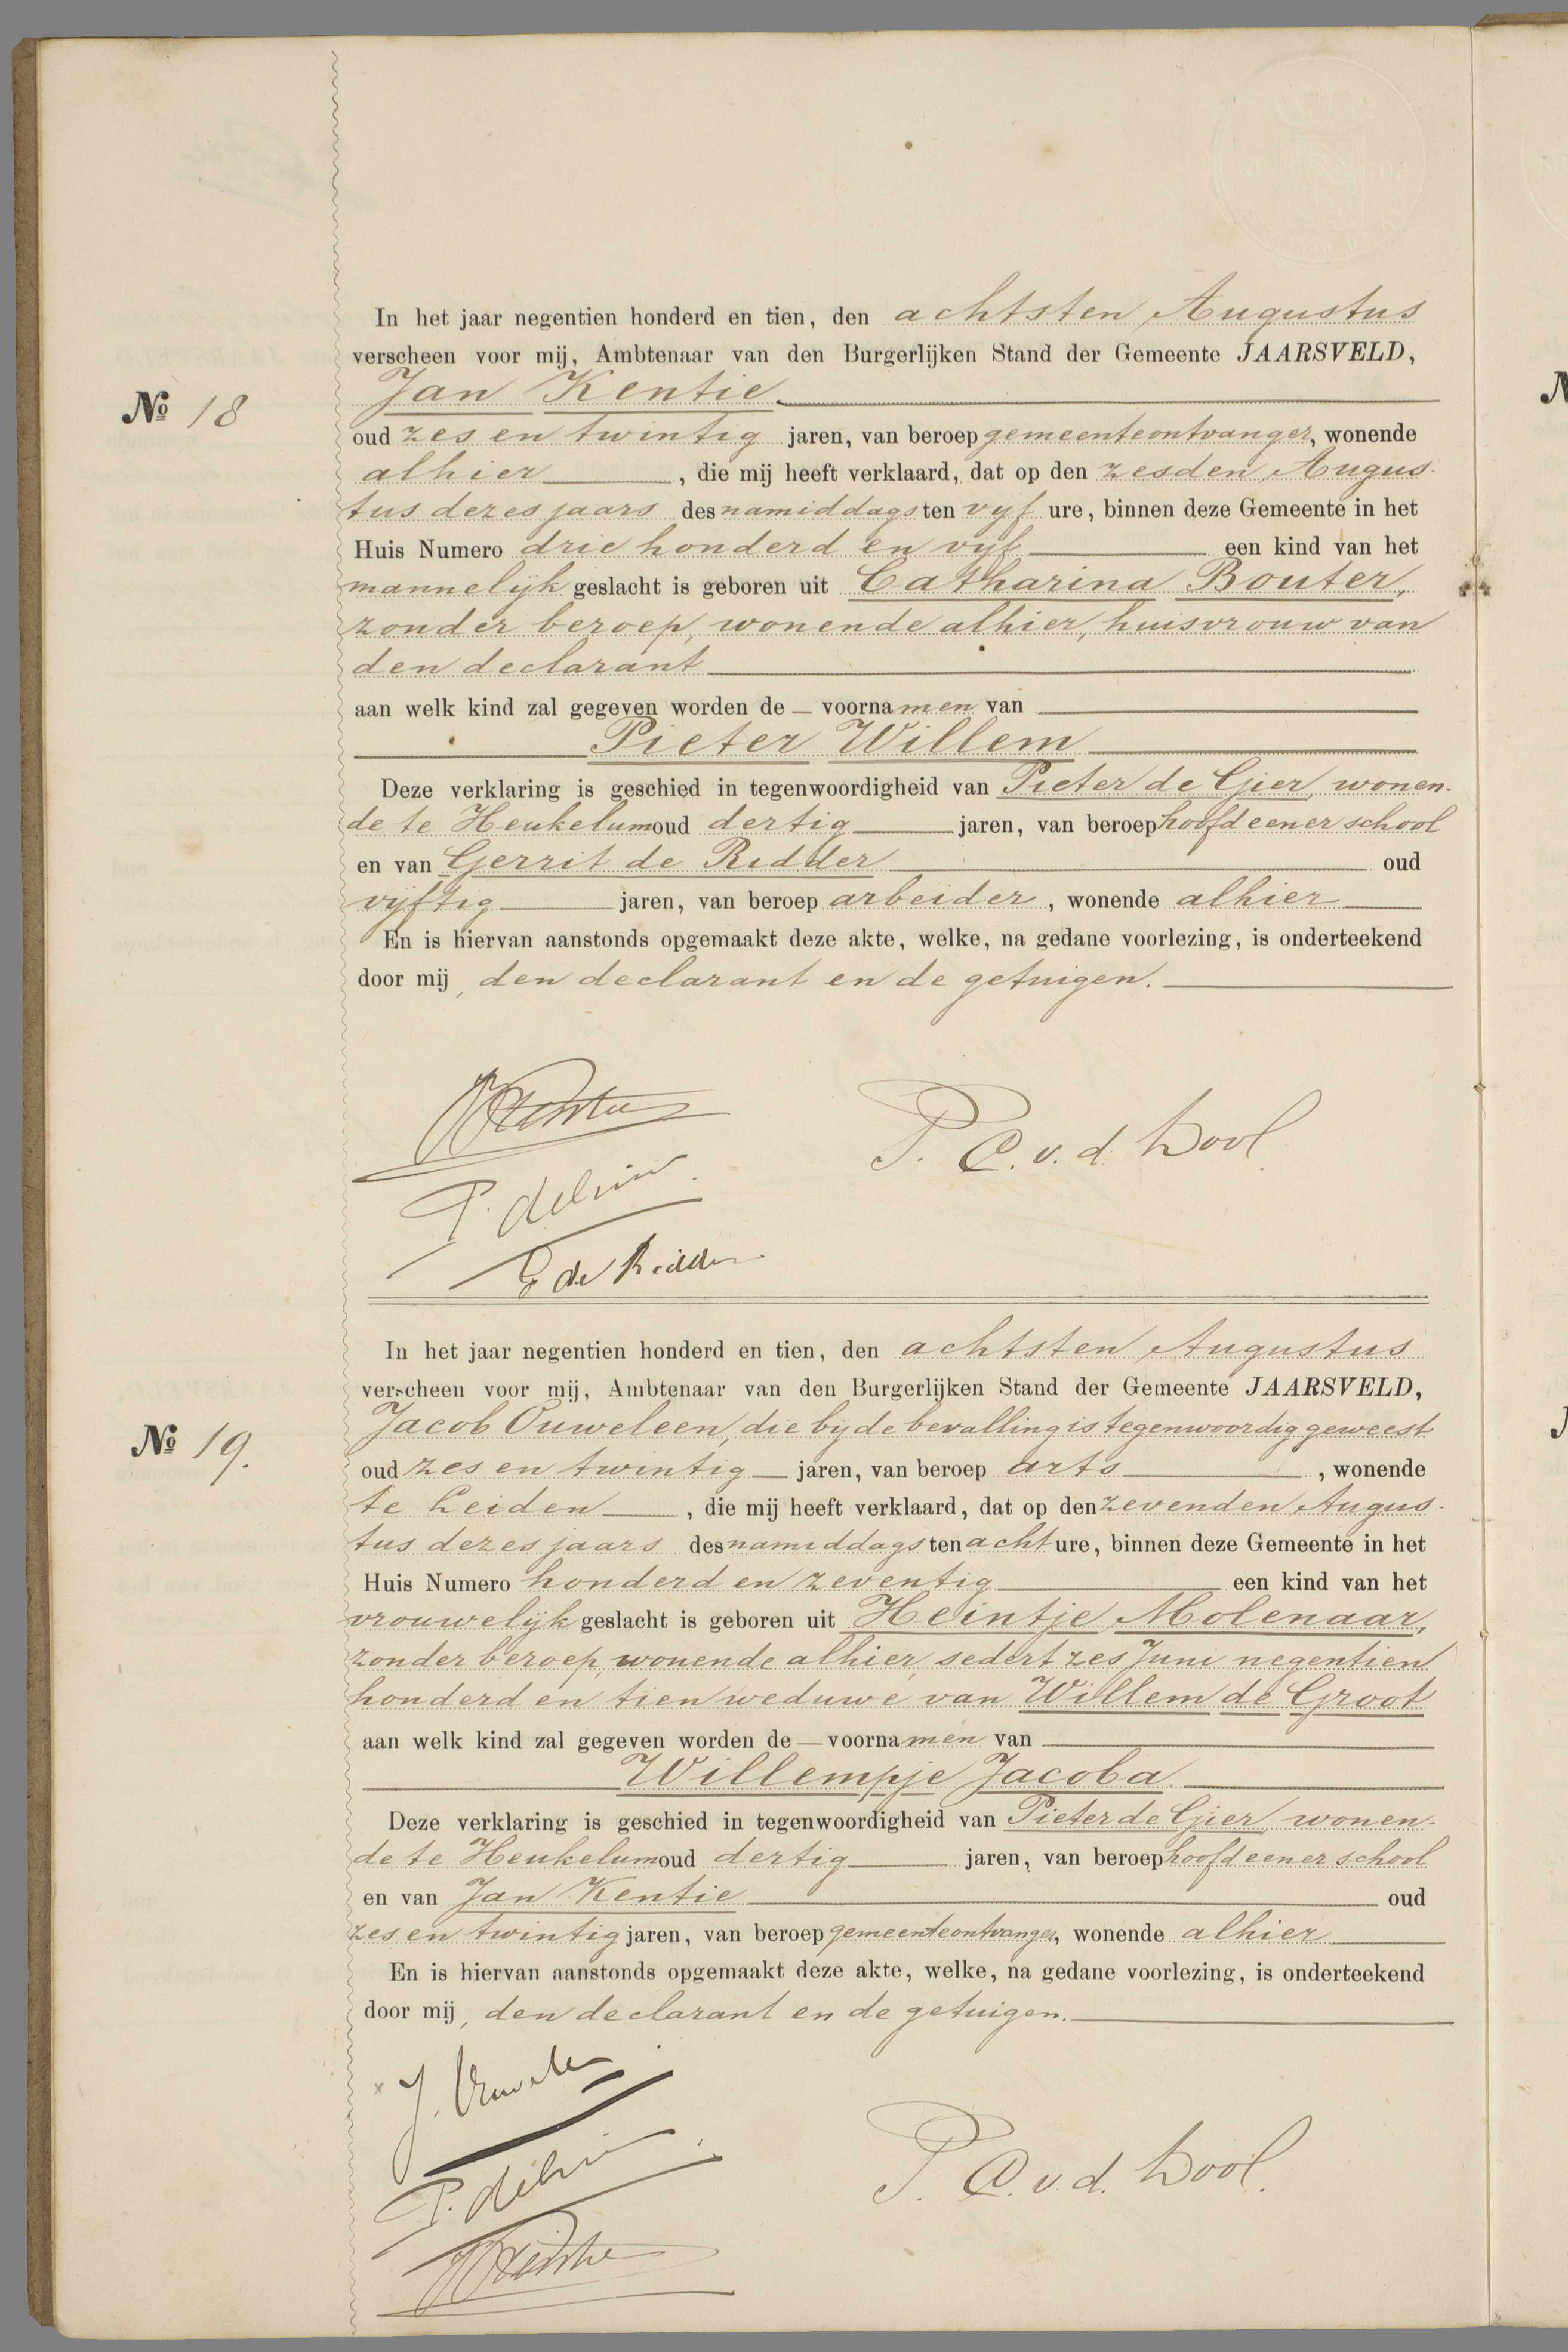 In het jaar negentien honderd en tien, den achtsten Augustus
verscheen voor mij, Ambtenaar van den Burgerlijken Stand der Gemeente JAARSVELD,
№ 18
Jan Kentie
oud zes en twintig jaren, van beroep gemeenteontvanger, wonende
alhier, die mij heeft verklaard, dat op den zesden Augus-
tus dezes jaars des namiddags ten vijf ure, binnen deze Gemeente in het
Huis Numero drie honderd en vijf een kind van het
mannelijk geslacht is geboren uit Catharina Bouter,
zonder beroep, wonende alhier, huisvrouw van
den declarant
aan welk kind zal gegeven worden de — voornamen van
Pieter Willem
Deze verklaring is geschied in tegenwoordigheid van Pieter de Gier, wonen-
de te Heukelum oud dertig jaren, van beroep hoofd eener school
en van Gerrit de Ridder oud
vijftig jaren, van beroep arbeider, wonende alhier
En is hiervan aanstonds opgemaakt deze akte, welke, na gedane voorlezing, is onderteekend
door mij, den declarant en de getuigen.
JKentie
P. C. v. d. Dool
P. de Gier
G de Ridder
In het jaar negentien honderd en tien, den achtsten Augustus
verscheen voor mij, Ambtenaar van den Burgerlijken Stand der Gemeente JAARSVELD,
№ 19.
Jacob Ouweleen, die bij de bevalling is tegenwoordig geweest
oud zes en twintig — jaren, van beroep arts, wonende
te Leiden, die mij heeft verklaard, dat op den zevenden Augus-
tus dezes jaars des namiddags ten acht ure, binnen deze Gemeente in het
Huis Numero honderd en zeventig een kind van het
vrouwelijk geslacht is geboren uit Heintje Molenaar,
zonder beroep, wonende alhier, sedert zes Juni negentien
honderd en tien weduwe van Willem de Groot
aan welk kind zal gegeven worden de — voornamen van
Willempje Jacoba
Deze verklaring is geschied in tegenwoordigheid van Pieter de Gier, wonen-
de te Heukelum oud dertig jaren, van beroep hoofd eener school
en van Jan Kentie oud
zes en twintig jaren, van beroep gemeenteontvanger, wonende alhier
En is hiervan aanstonds opgemaakt deze akte, welke, na gedane voorlezing, is onderteekend
door mij, den declarant en de getuigen.
J. Ouweleen
P. de Gier
P. C. v. d. Dool
JKentie